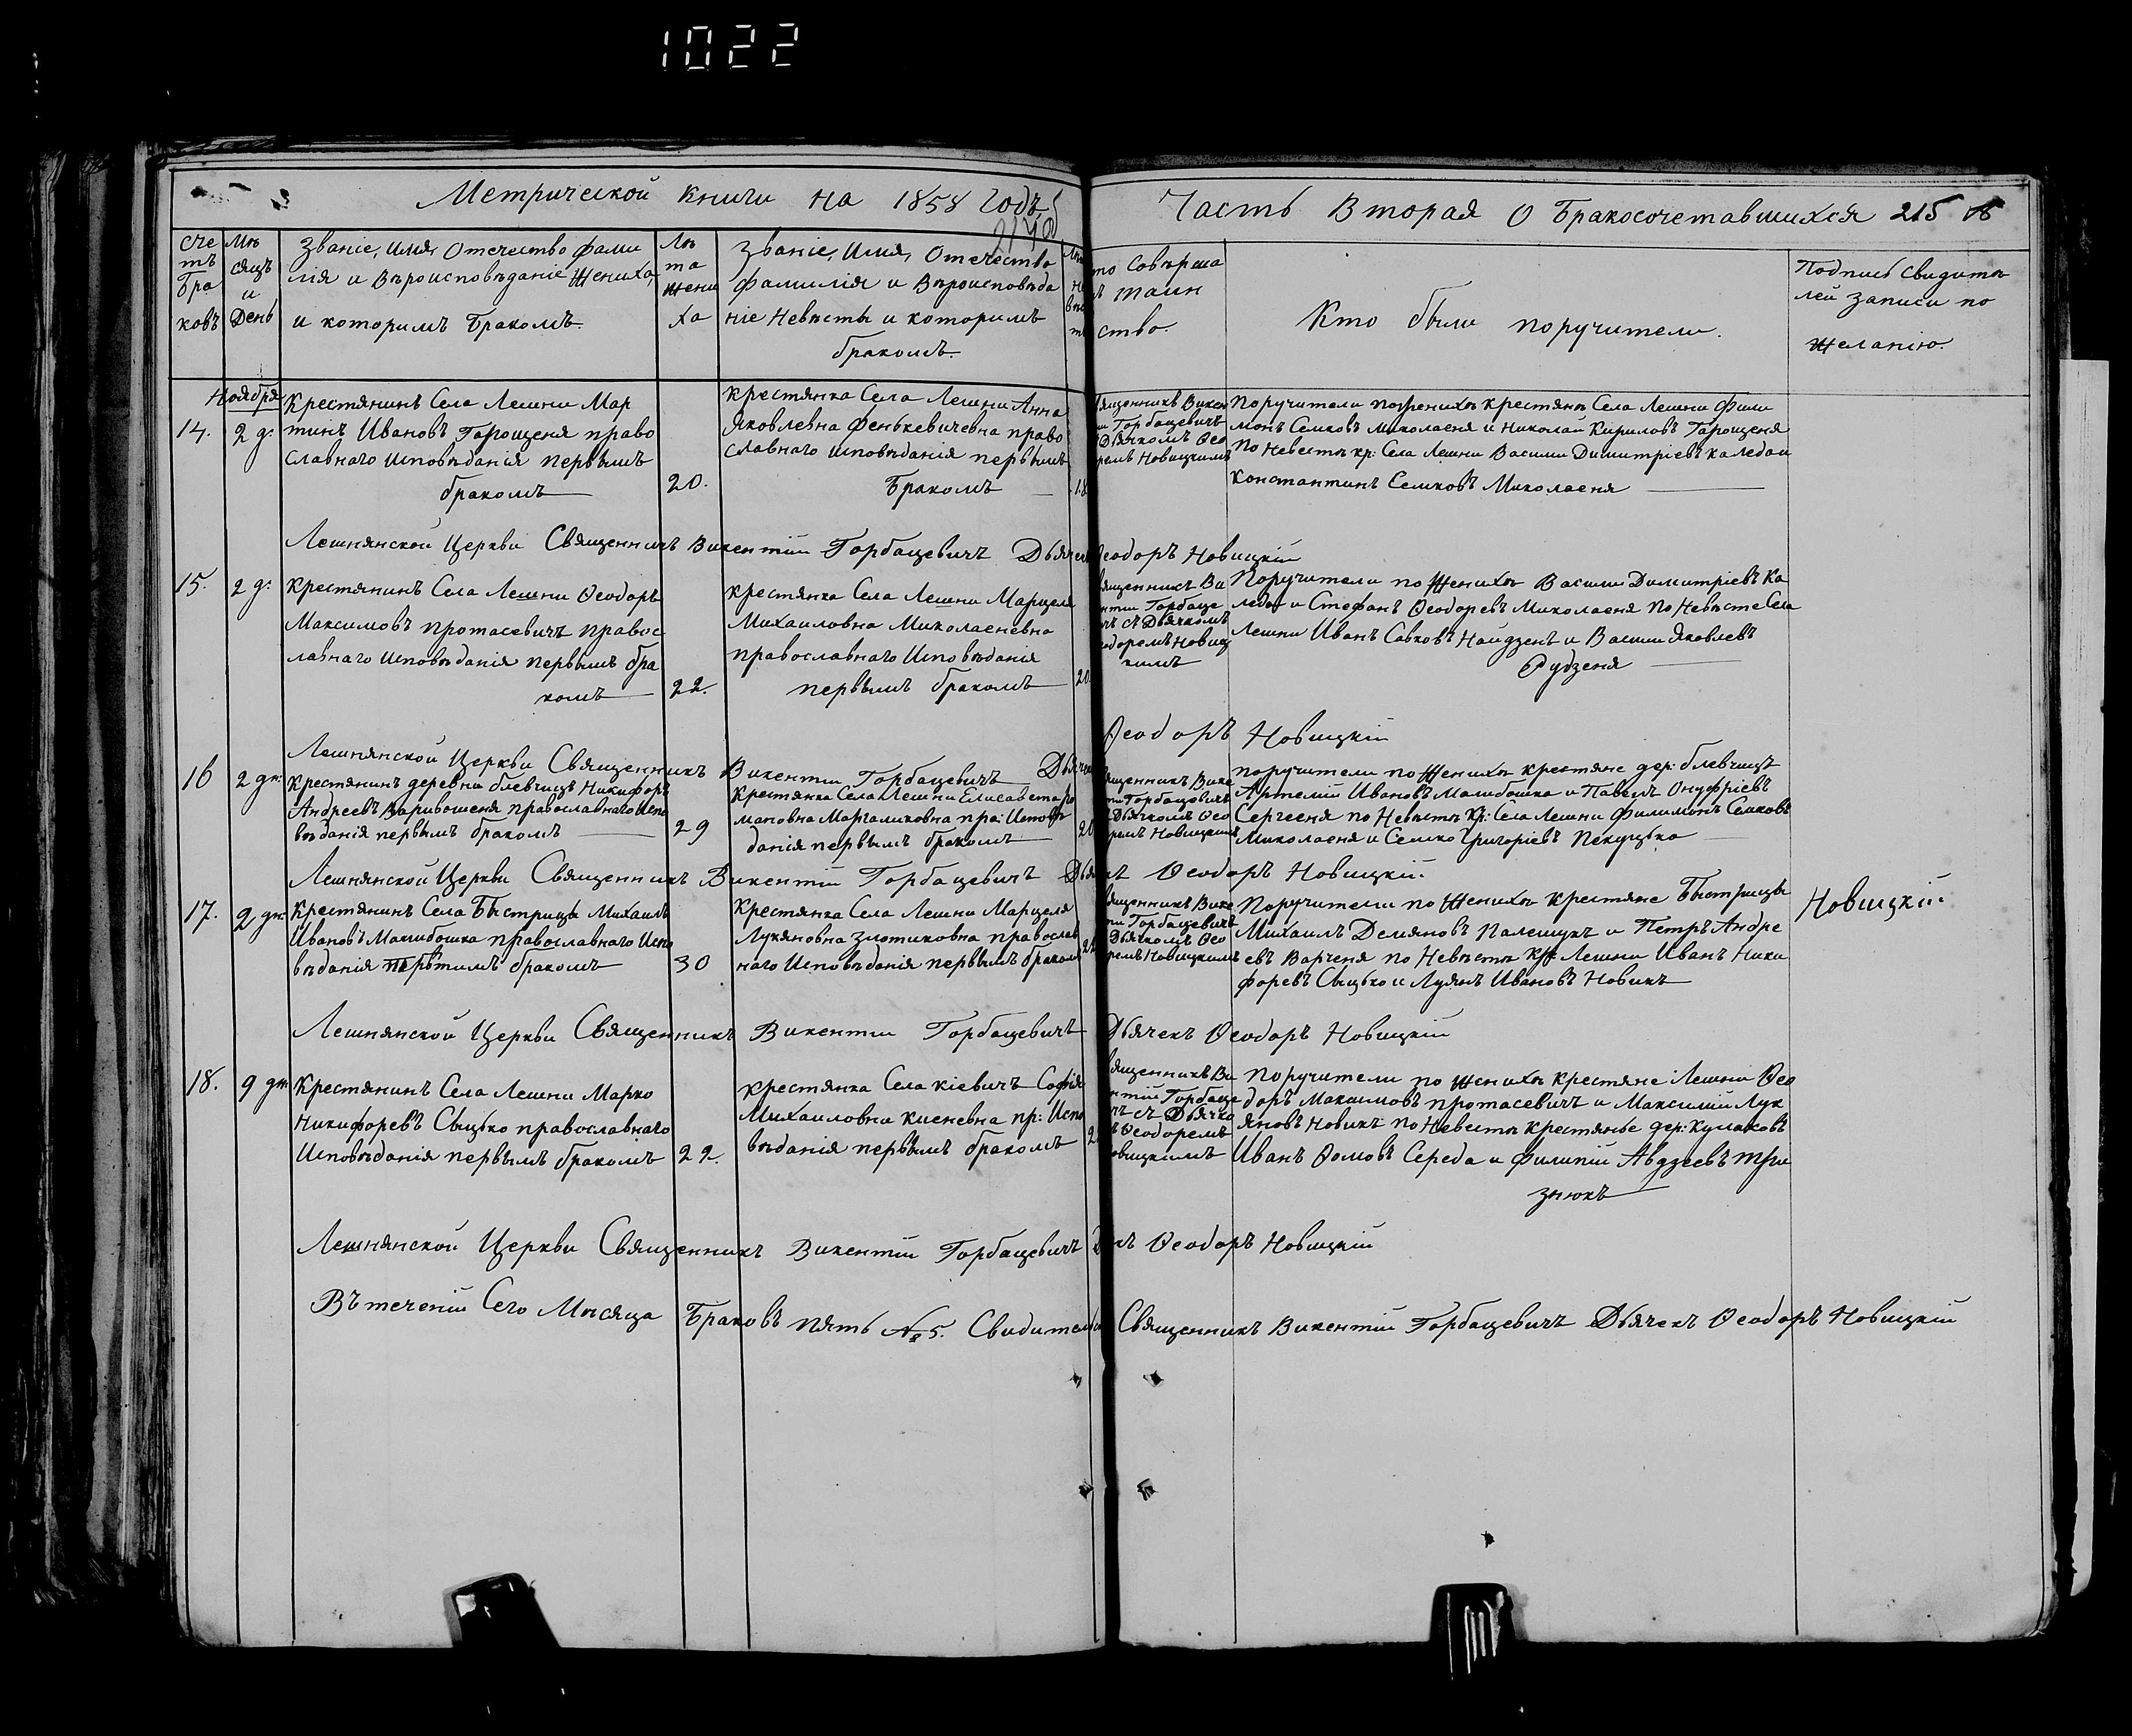 1022
Метрической книги на 1858 годъ
Часть Вторая О Бракосочетавшихся 215
Сче
тъ
бра
ковъ
Мѣ
сяцъ
и
День
Званіе, Имя, Отечество фами
лія и Вѣроисповѣданіе Жениха,
и которимъ Бракомъ.
Лѣ
та
жени
ха
Званіе, Имя, Отечество
фамилія и Вѣроисповѣда
ніе Невѣсты и которимъ
бракомъ.
то Совѣрша
таин
ство.
Кто были поручители.
Подпись Свидитѣ
лей записи по
желанію.
Ноября
14.
2 д:
Крестянинъ Села Лешни Мар
тинъ Ивановъ Тарощеня право
славнаго исповѣданія первымъ
бракомъ
20.
Крестянка Села Лешни Анна
Яковлевна Фенькевичевна право
славнаго исповѣданія первымъ
Бракомъ
18
ященникъ Викен
Горбацевичъ
Дьячкомъ Ѳео
ремъ Новицкимъ
Поручители по женихѣ крестянѣ Села Лешни Фили
монъ Семковъ Миколаеня и Николай Кириловъ Тарощеня
По Невестѣ кр: Села Лешни Василий Димитріевъ Каледа и
Константинъ Семковъ Миколаеня
Лешнянской Церкви Священникъ Викентій Горбацевичъ Дьячекъ Ѳеодоръ Новицкій
15.
2 д:
Крестянинъ Села Лешни Ѳеодоръ
Максимовъ Протасевичъ Правос
лавнаго Исповѣданія первымъ бра
комъ
22.
Крестянка Села Лешни Марцеля
Михаиловна Миколаеневна
православнаго Исповѣданія
первымъ бракомъ
20
вященникъ Ви
нтіи Горбаце
чъ съ Дьячкомъ
одоремъ Новиц
кимъ
Поручители по Женихѣ Васили Димитріевъ Ка
леда и Стефанъ Ѳеодоревъ Миколаеня По Невѣсте Села
Лешни Иванъ Савковъ Найдзенъ и Васили Яковлевъ
Рудзеня
Лешнянской Церкви Священникъ Викентіи Горбацевичъ Дьячекъ
Ѳеодоръ Новицкій
16
2 дн:
Крестянинъ деревни блевчицъ Никифоръ
Андреевъ Варивошеня православнаго Испо
вѣданія первымъ бракомъ
29
Крестянка Села Лешни Елисавета Ро
мановна Маргаликовна пра: Исповѣ
данія первымъ бракомъ
20
вященникъ Вике
тіи Горбацевичъ
Дьячкомъ Ѳео
ремъ Новицкимъ
поручители по Женихѣ крестяне дер: блевчицъ
Артемій Ивановъ Малибошка и Павелъ Онуфріевъ
Сергееня по Невѣстѣ Кр: Села Лешни Филимонъ Семковъ
Миколаеня и Семко Григоріевъ Пекуцько
Лешнянской Церкви Священникъ Викентій Горбацевичъ Дьячекъ Ѳеодоръ Новицкій.
17.
2 дн:
Крестянинъ Села Быстрицы Михаилъ
Ивановъ Малибошка православнаго Испо
вѣданія бракомъ
30
Крестянка Села Лешни Марцеля
Лукяновна Злотиковна православ
наго Исповѣданія первымъ бракомъ
22
вященникъ Вике
тіи Горбацевичъ
Дьячкомъ Ѳео
ремъ Новицкимъ
Поручители по Женихѣ крестяне Быстрицы
Михаилъ Демяновъ Палещукъ и Петръ Андре
евъ Варченя по Невѣстѣ Кр: Лешни Иванъ Ники
форевъ Сыцько и Лукянъ Ивановъ Новикъ
Новицкій
Лешнянской Церкви Священникъ Викентіи Горбацевичъ Дьячекъ Ѳеодоръ Новицкій
18.
9 дн:
Крестянинъ Села Лешни Марко
Никифоревъ Сыцько православнаго
Исповѣданія первымъ бракомъ
22.
Крестянка Села Кіевичъ Софія
Михаиловна Киеневна пр: Испо
вѣданія первымъ бракомъ
вященникъ Ви
нтій Горбаце
чъ съ Дьячко
Ѳеодоремъ
овицкимъ
Поручители по Женихѣ крестяне Лешни Ѳео
доръ Максимовъ Протасевичъ и Максимій Лук
яновъ Новикъ по Невѣстѣ крестянѣ дер: Кулаковъ
Иванъ Ѳомовъ Середа и Филипій Авдзеевъ Три
знюкъ
Лешнянской Церкви Священникъ Викентіи Горбацевичъ Ѳеодоръ Новицкій
Въ теченіи Сего Мѣсяца Браковъ пять № 5. Свидители Священникъ Викентій Горбацевичъ Дьячекъ Ѳеодоръ Новицкій